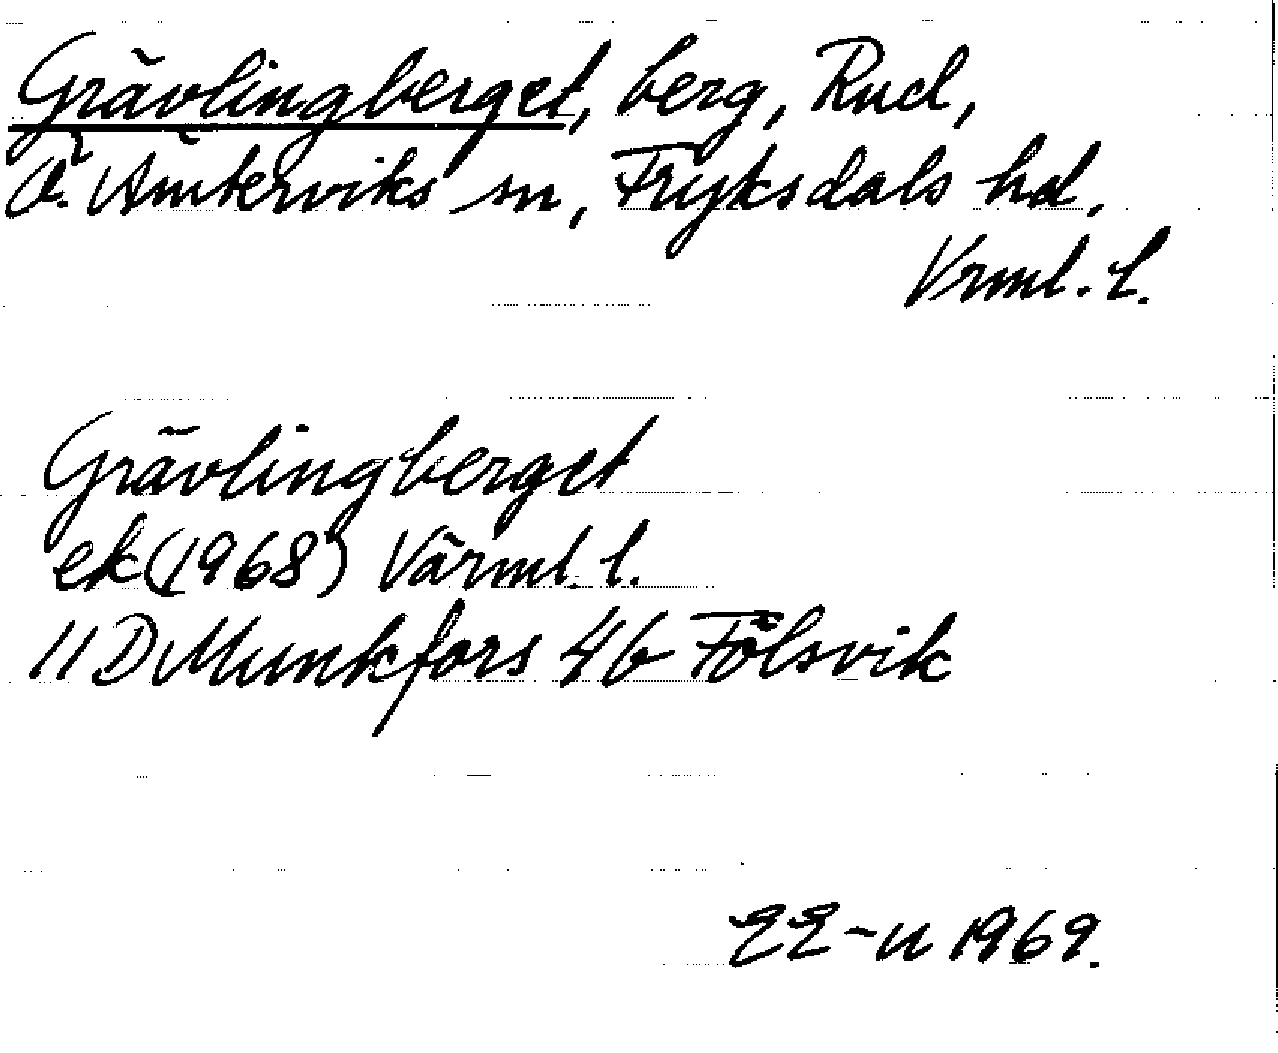 Grävlingberget, berg, Rud,
Ö. Ämterviks sn, Fryksdals hd,
Vrml. l.
Grävlingberget
ek (1968) Värml. l.
11 D Munkfors 4b Fölsvik
EE-n 1969.